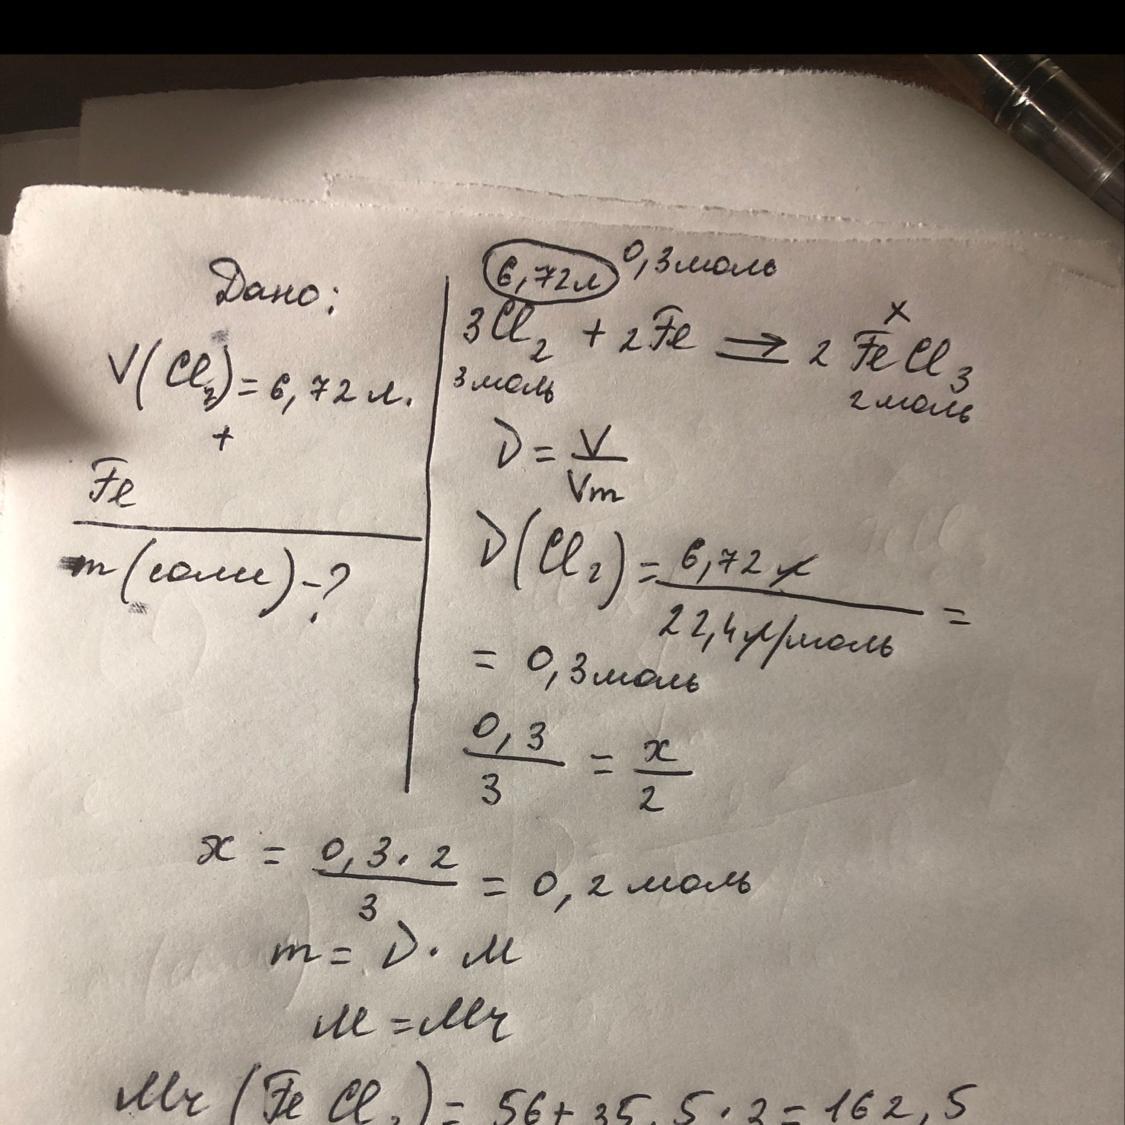 Дано:
V(Cl₂) = 6,72 л.
+
Fe
m(соли) - ?
6,72л 0,3моль x
3Cl₂ + 2Fe ⇒ 2FeCl₃
3моль 2моль
ν = V/Vm
ν(Cl₂) = 6,72 л / 22,4 л/моль =
= 0,3моль
0,3/3 = x/2
x = 0,3·2/3 = 0,2 моль
m = ν · M
M = Mr
Mr(FeCl₃) = 56 + 35,5·3 = 162,5